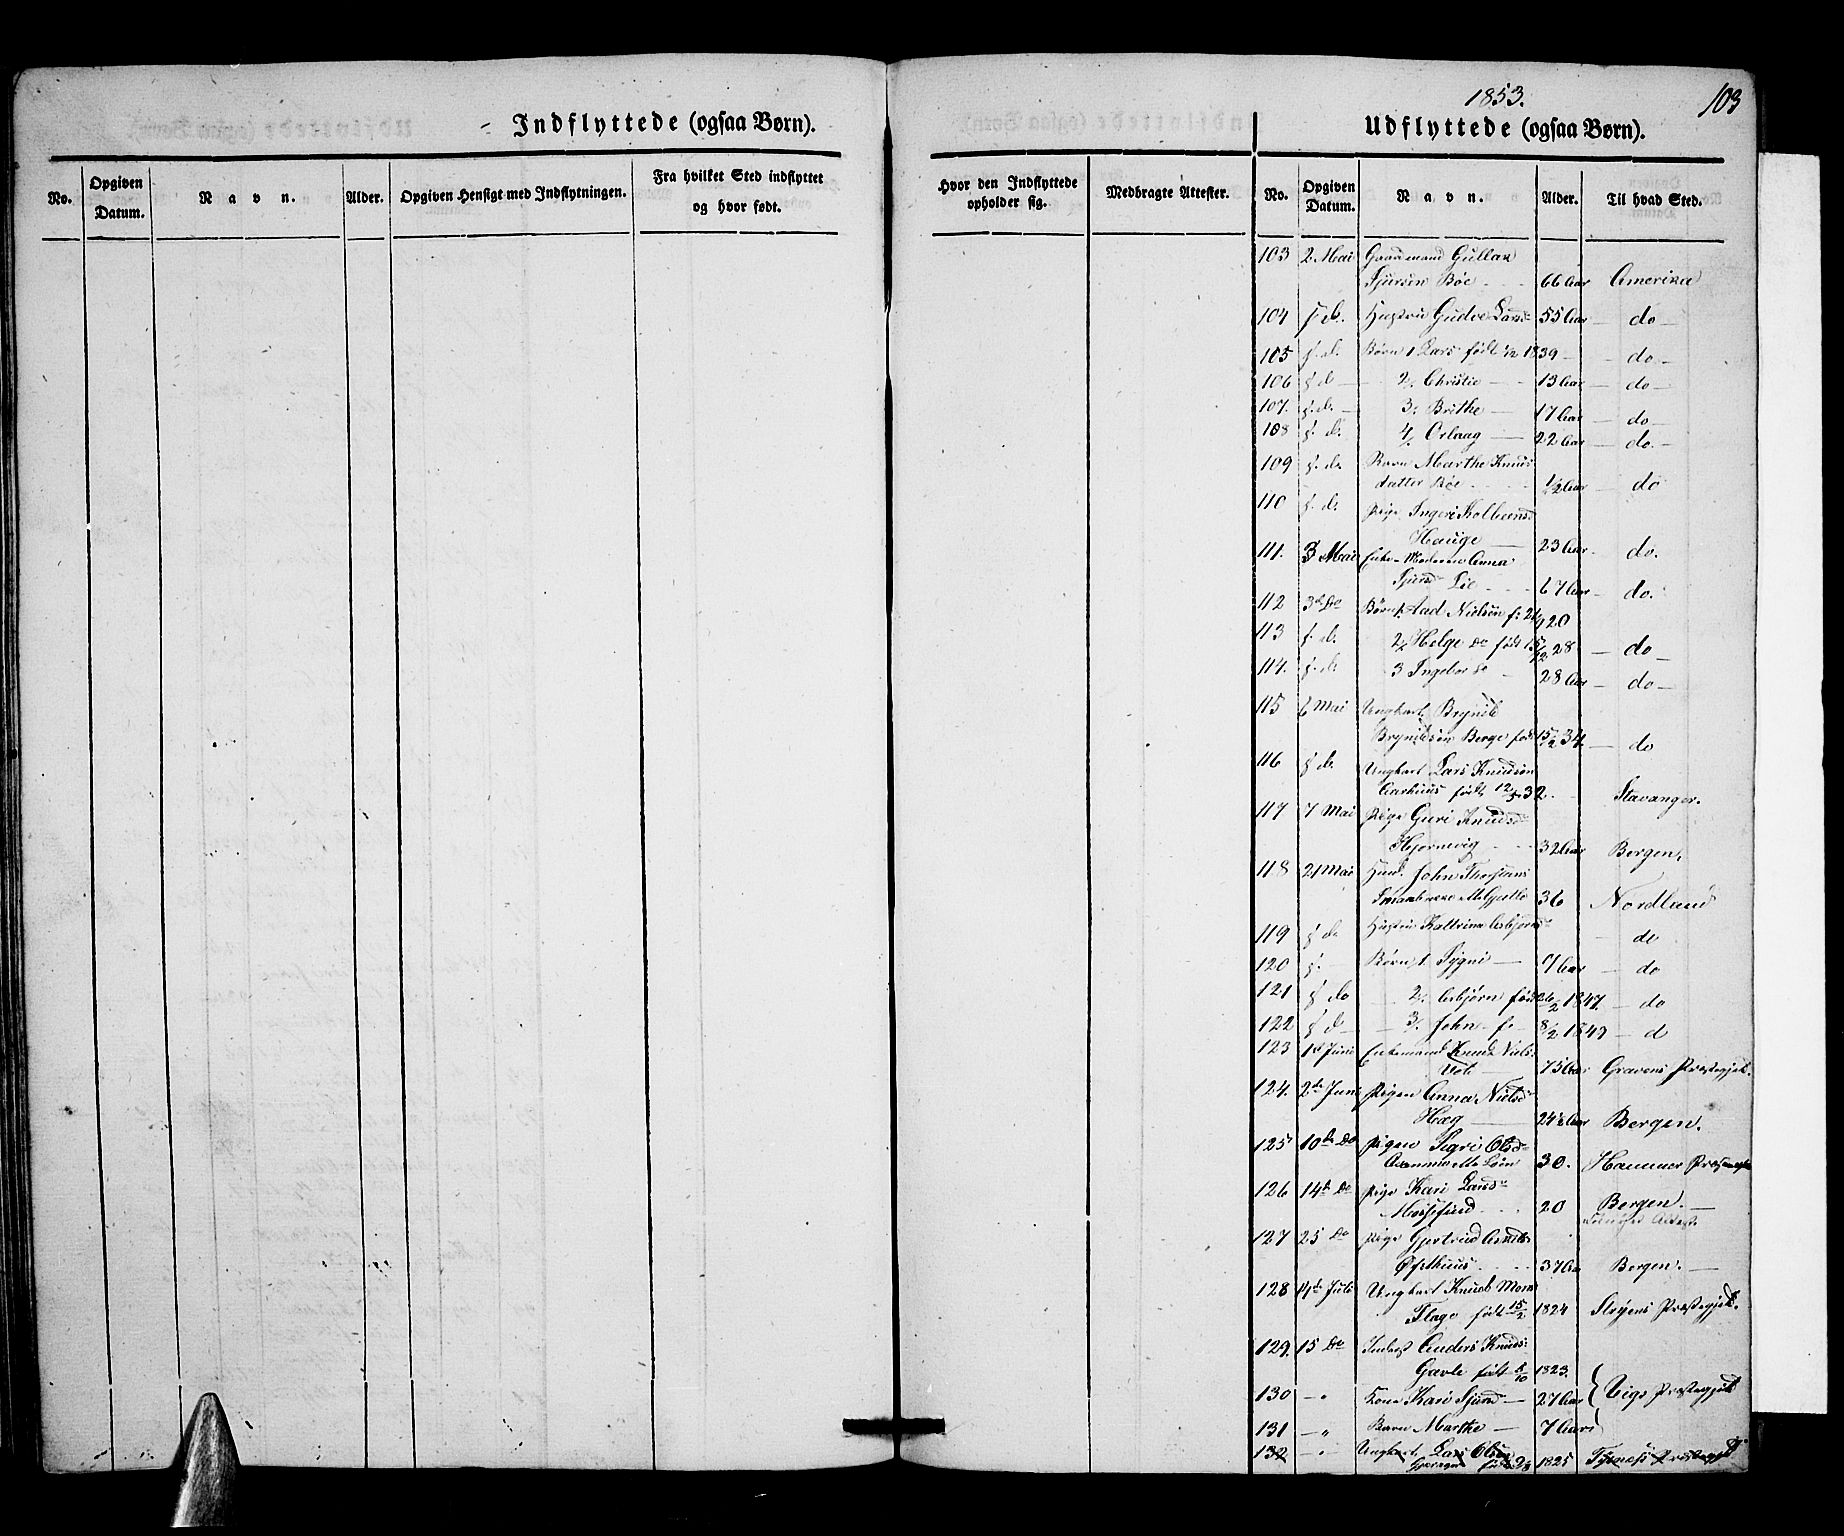 1853.
103
Indflyttede (ogsaa Børn).
Udflyttede (ogsaa Børn).
No. Opgiven Datum. Navn. Alder. Opgiven Hensigt med Indflytningen. Fra hvilket Sted indflyttet og hvor født.
Hvor den Indflyttede opholder sig. Medbragte Attester. No. Opgiven Datum. Navn. Alder. Til hvad Sted.
103 2 Mai Gaardmand Gullak
Sjursen Bøe 66 Aar Amerika
104 f. d. Hustru Gudve Larsd 55 Aar do
105 f. d. Børn 1 Lars født 1/2 1839 do
106 f. d 2, Christie 13 Aar do
107. f. d. 3, Brithe 17 Aar do
108 f. d. 4, Orlaug 22 Aar do.
109 f. d. Barn Marthe Knuds
datter Bøe 1/2 Aar do
110 f. d. Pige Ingeri Kolbeensd
Hauge 23 Aar do.
111. 3 Mai Enke-Madame Anna
Sjursd Lie 67 Aar do.
112 3d Do Børn 1. Aad Nielsen f: 20
113 f. d. 2, Helge Do født 15/12 28 do
114. f. d. 3 Ingebor 28 Aar do
115 6 Mai Ungkarl Brynild
Brynildsen Berge født 15/2 34. do
116 f d. Ungkarl Lars Knudsen
Aarhuus født 12/5 32. Stavanger.
117 7 Mai Pige Guri Knudsd
Hjornevig 32 Aar Bergen.
118 21 Mai John
36 Nordland
119 f do Hustru Kattrina Asbjørnsd do
120 f. Børn 1. Sygni 9 Aar do
121 f do 2, Asbjørn født 26/2 1847. do
122 f d 3, John f 8/2 1849 d
123 1d Juni Enkemand Knud Niels.
75 Aar Gravens Præstegjeld.
124. 2d Juni Pigen Anna Nielsd
Hæg 24 1/2 Aar Bergen.
125 10de Do Pigen Sigri Olsd
30. Hammer
126 14d Do Pige Kari Larsd
20 Bergen.
127 25 Do Pige Gjertrud
Øfsthuus 37 Aar Bergen.
128 14d Juli Ungkarl Knud Mons
Flage født 15/2 1824 Præstegjeld.
129. 15 Do Inderst Anders Knuds:
født 1823.
130 - " Kone Kari Sjursd 27 Aar Vigs Præstegjeld
131 - " Barn Marthe 7 Aar
132 - " Ungkarl Lars Olsen
født 1825